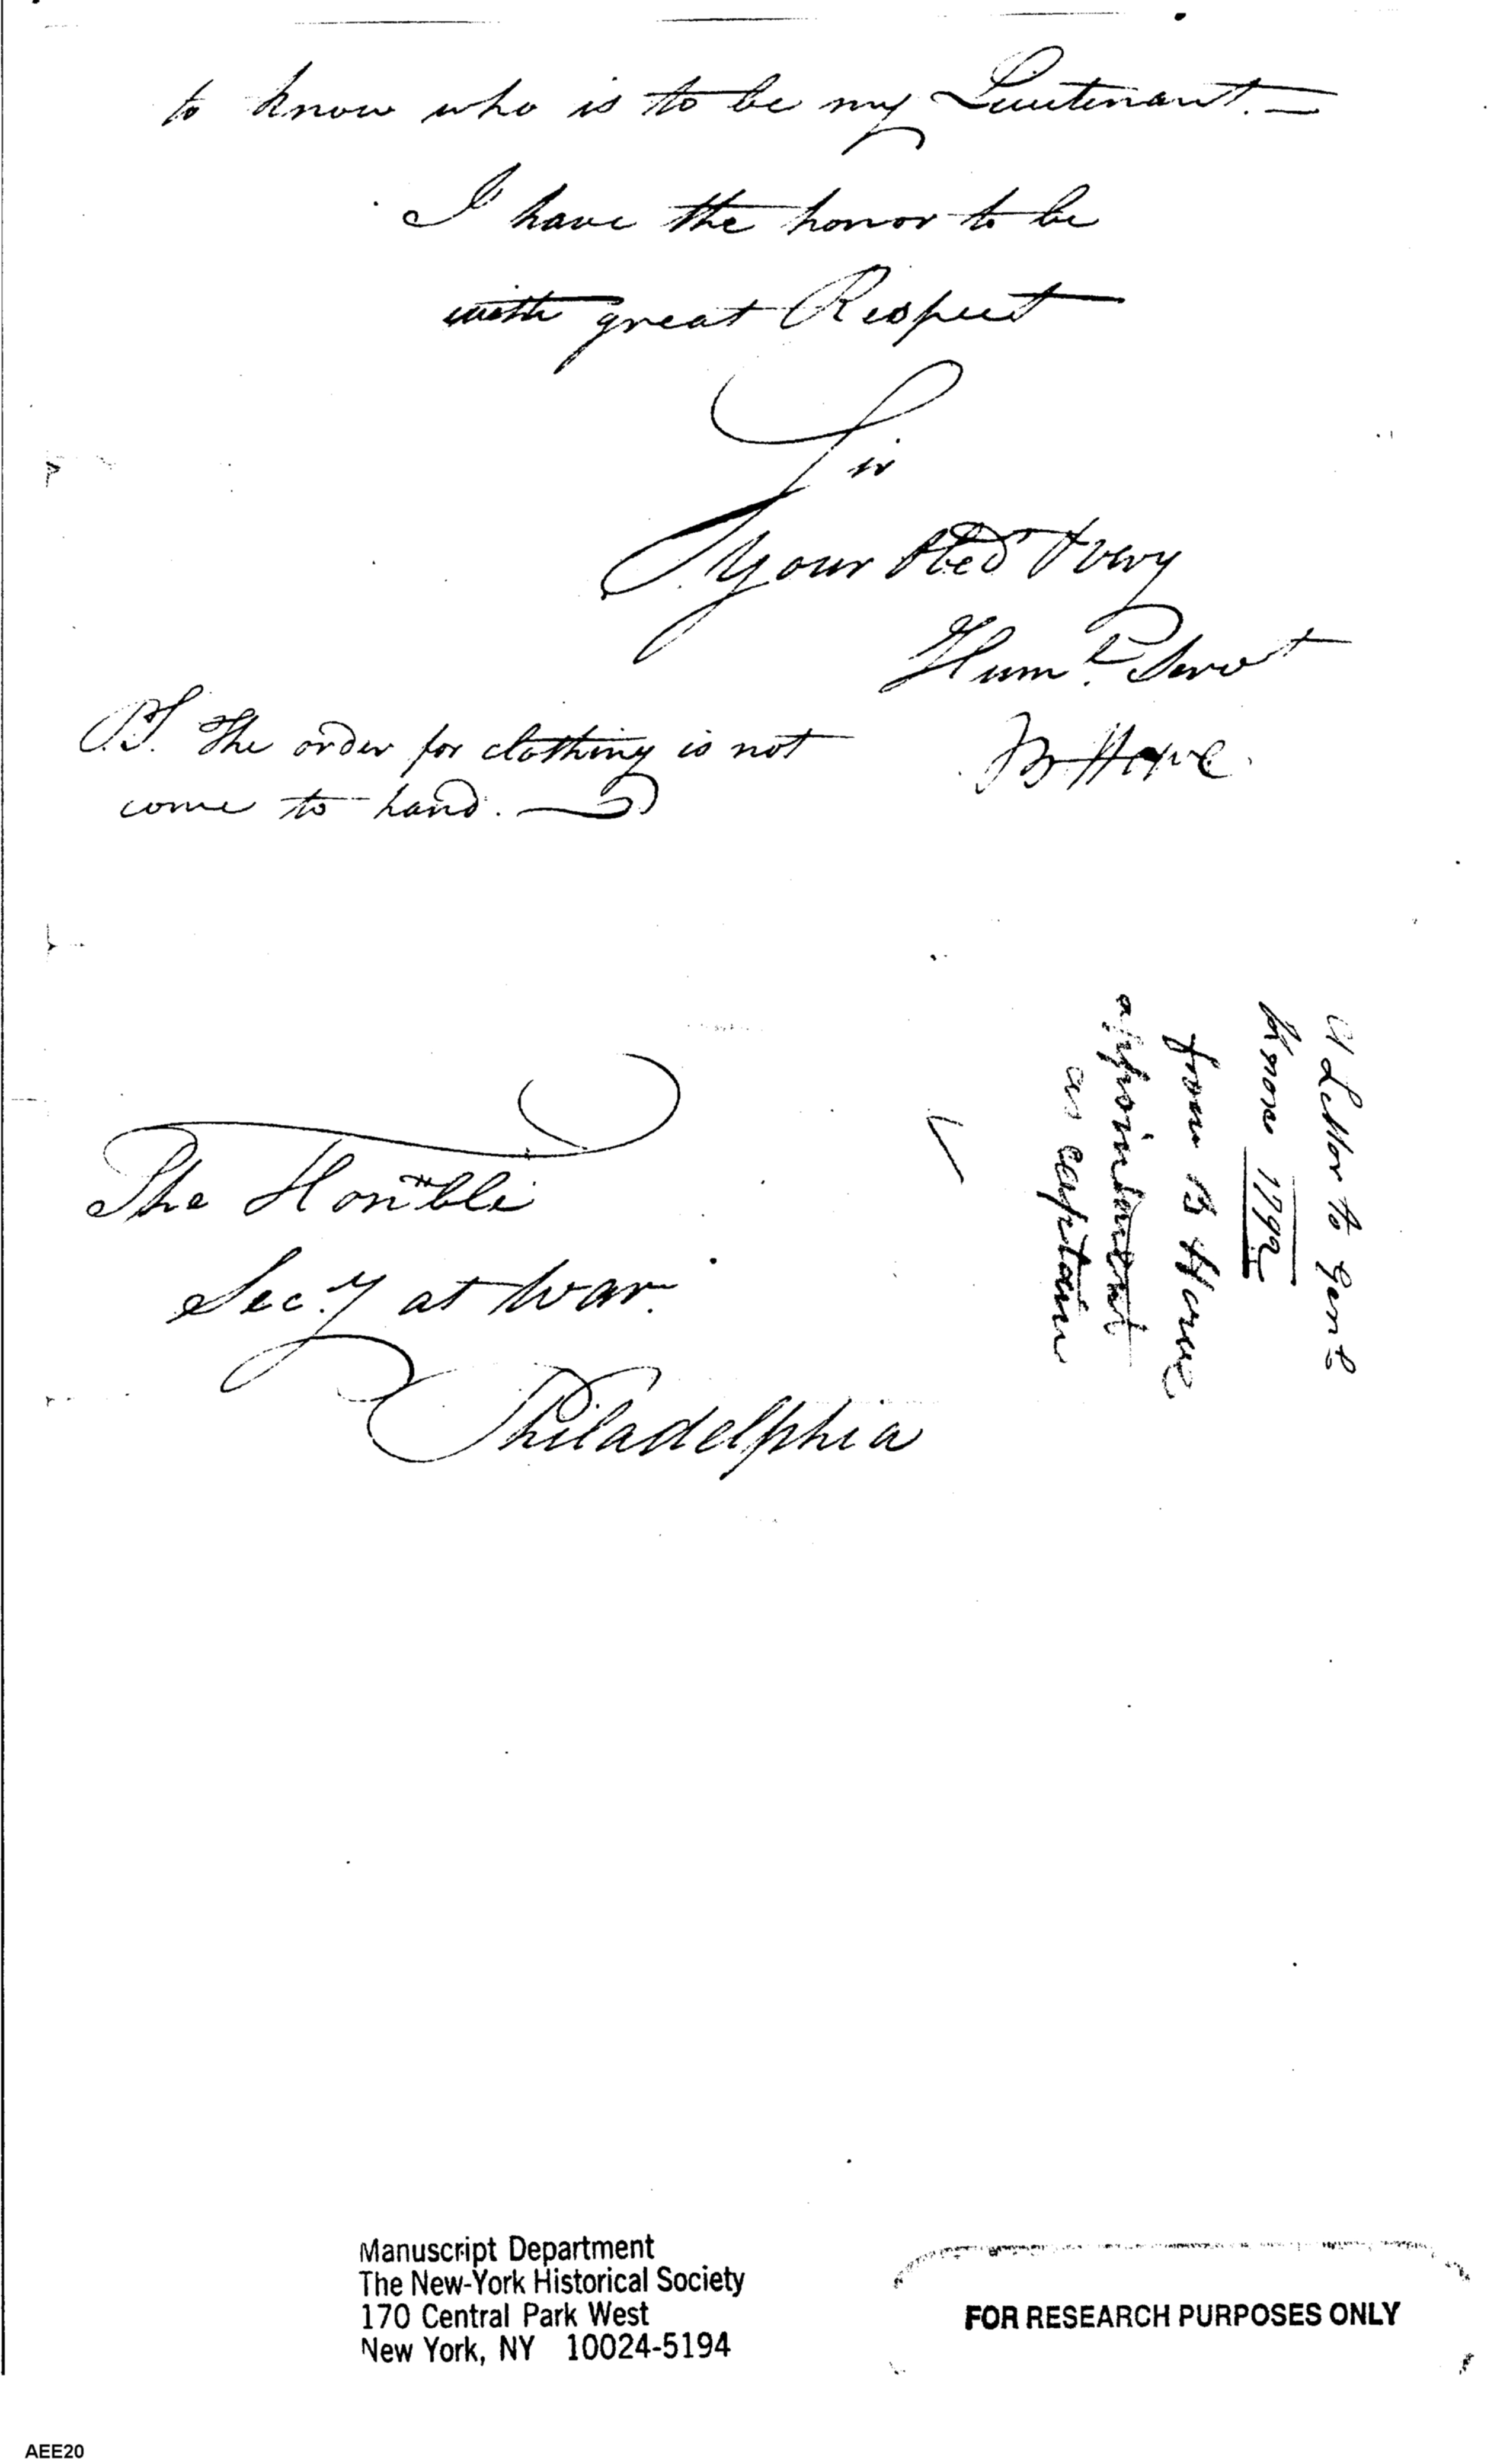 to know who is to be my Lieutenant.—
I have the honor to be
with great Respect
Sir
Your Obed & very
Humle Servt
P.S. The order for clothing is not
come to hand.
The Honble
Secy at War.
Philadelphia
A Letter to Genl
Knox 1792
from B Howe
appointment
as captain
Manuscript Department
The New-York Historical Society
170 Central Park West
New York, NY 10024-5194
FOR RESEARCH PURPOSES ONLY
AEE20